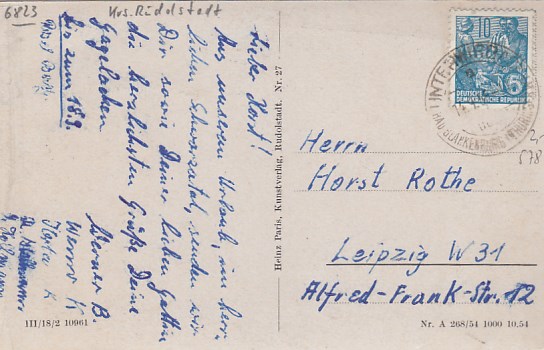 6823
Krs. Rudolstadt
Lieber Horst!
Aus unserem Urlaub, im herr-
lichen Schwarzatal, senden wir
Dir sowie Deiner lieben Gattin
die herzlichsten Grüße Deine
Werner B.
Werner K
K
bis zum 18.9.
Heinz Paris, Kunstverlag, Rudolstadt. Nr. 27
10
6
DEUTSCHE
DEMOKRATISCHE REPUBLIK
Herrn
Horst Rothe
Leipzig W 31
Alfred-Frank-Str. 12
III/18/2 10961
Nr. A 268/54 1000 10,54